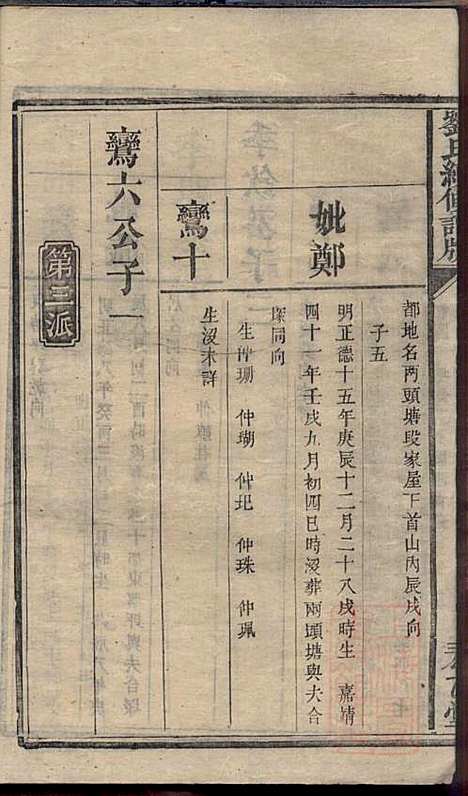 劉氏續修譜牒
都地名兩頭塘段家屋下首山內辰戌向
子五
妣鄭
明正德十五年庚辰十二月二十八戌時生 嘉靖
四十一年壬戌九月初四巳時沒葬兩頭塘與夫合
塚同向
生 仲珊 仲瑚 仲玘 仲珠 仲珮
鸞十
生沒未詳
鸞六公子一
第三派